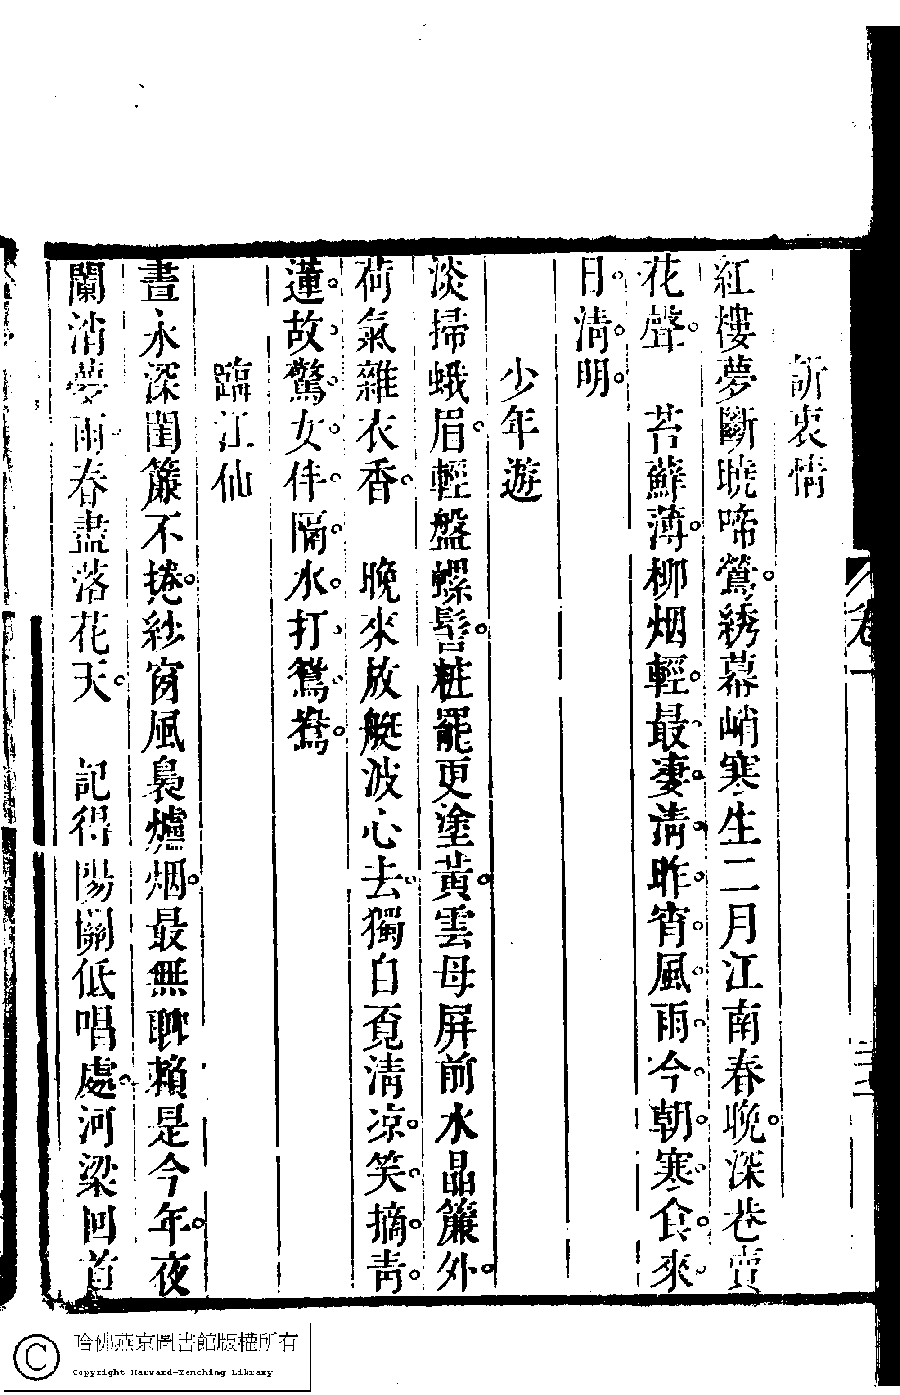 訴衷情
紅樓夢斷曉啼鶯。綉幕峭寒生二月江南春晚。深巷賣
花聲。 苔蘚薄。柳烟輕。最凄。清。昨。宵。風。雨。今。朝。寒。食。來。
日。清。明。
少年遊
淡掃蛾眉。輕盤螺髻。粧罷更塗黃。雲母屏前水晶簾外。
荷氣雜衣香。 晚來放艇波心去。獨自覔清凉。笑。摘。青。
蓮。故。驚。女。伴。隔。水。打。鴛。鴦。
臨江仙
晝永深閨簾不捲。紗窗風裊爐烟。最無聊賴是今年。夜
闌消夢雨春盡落花天。 記得陽關低唱處。河梁回首
卷一
哈佛燕京圖書館版權所有
Copyright Harvard-Yenching Library